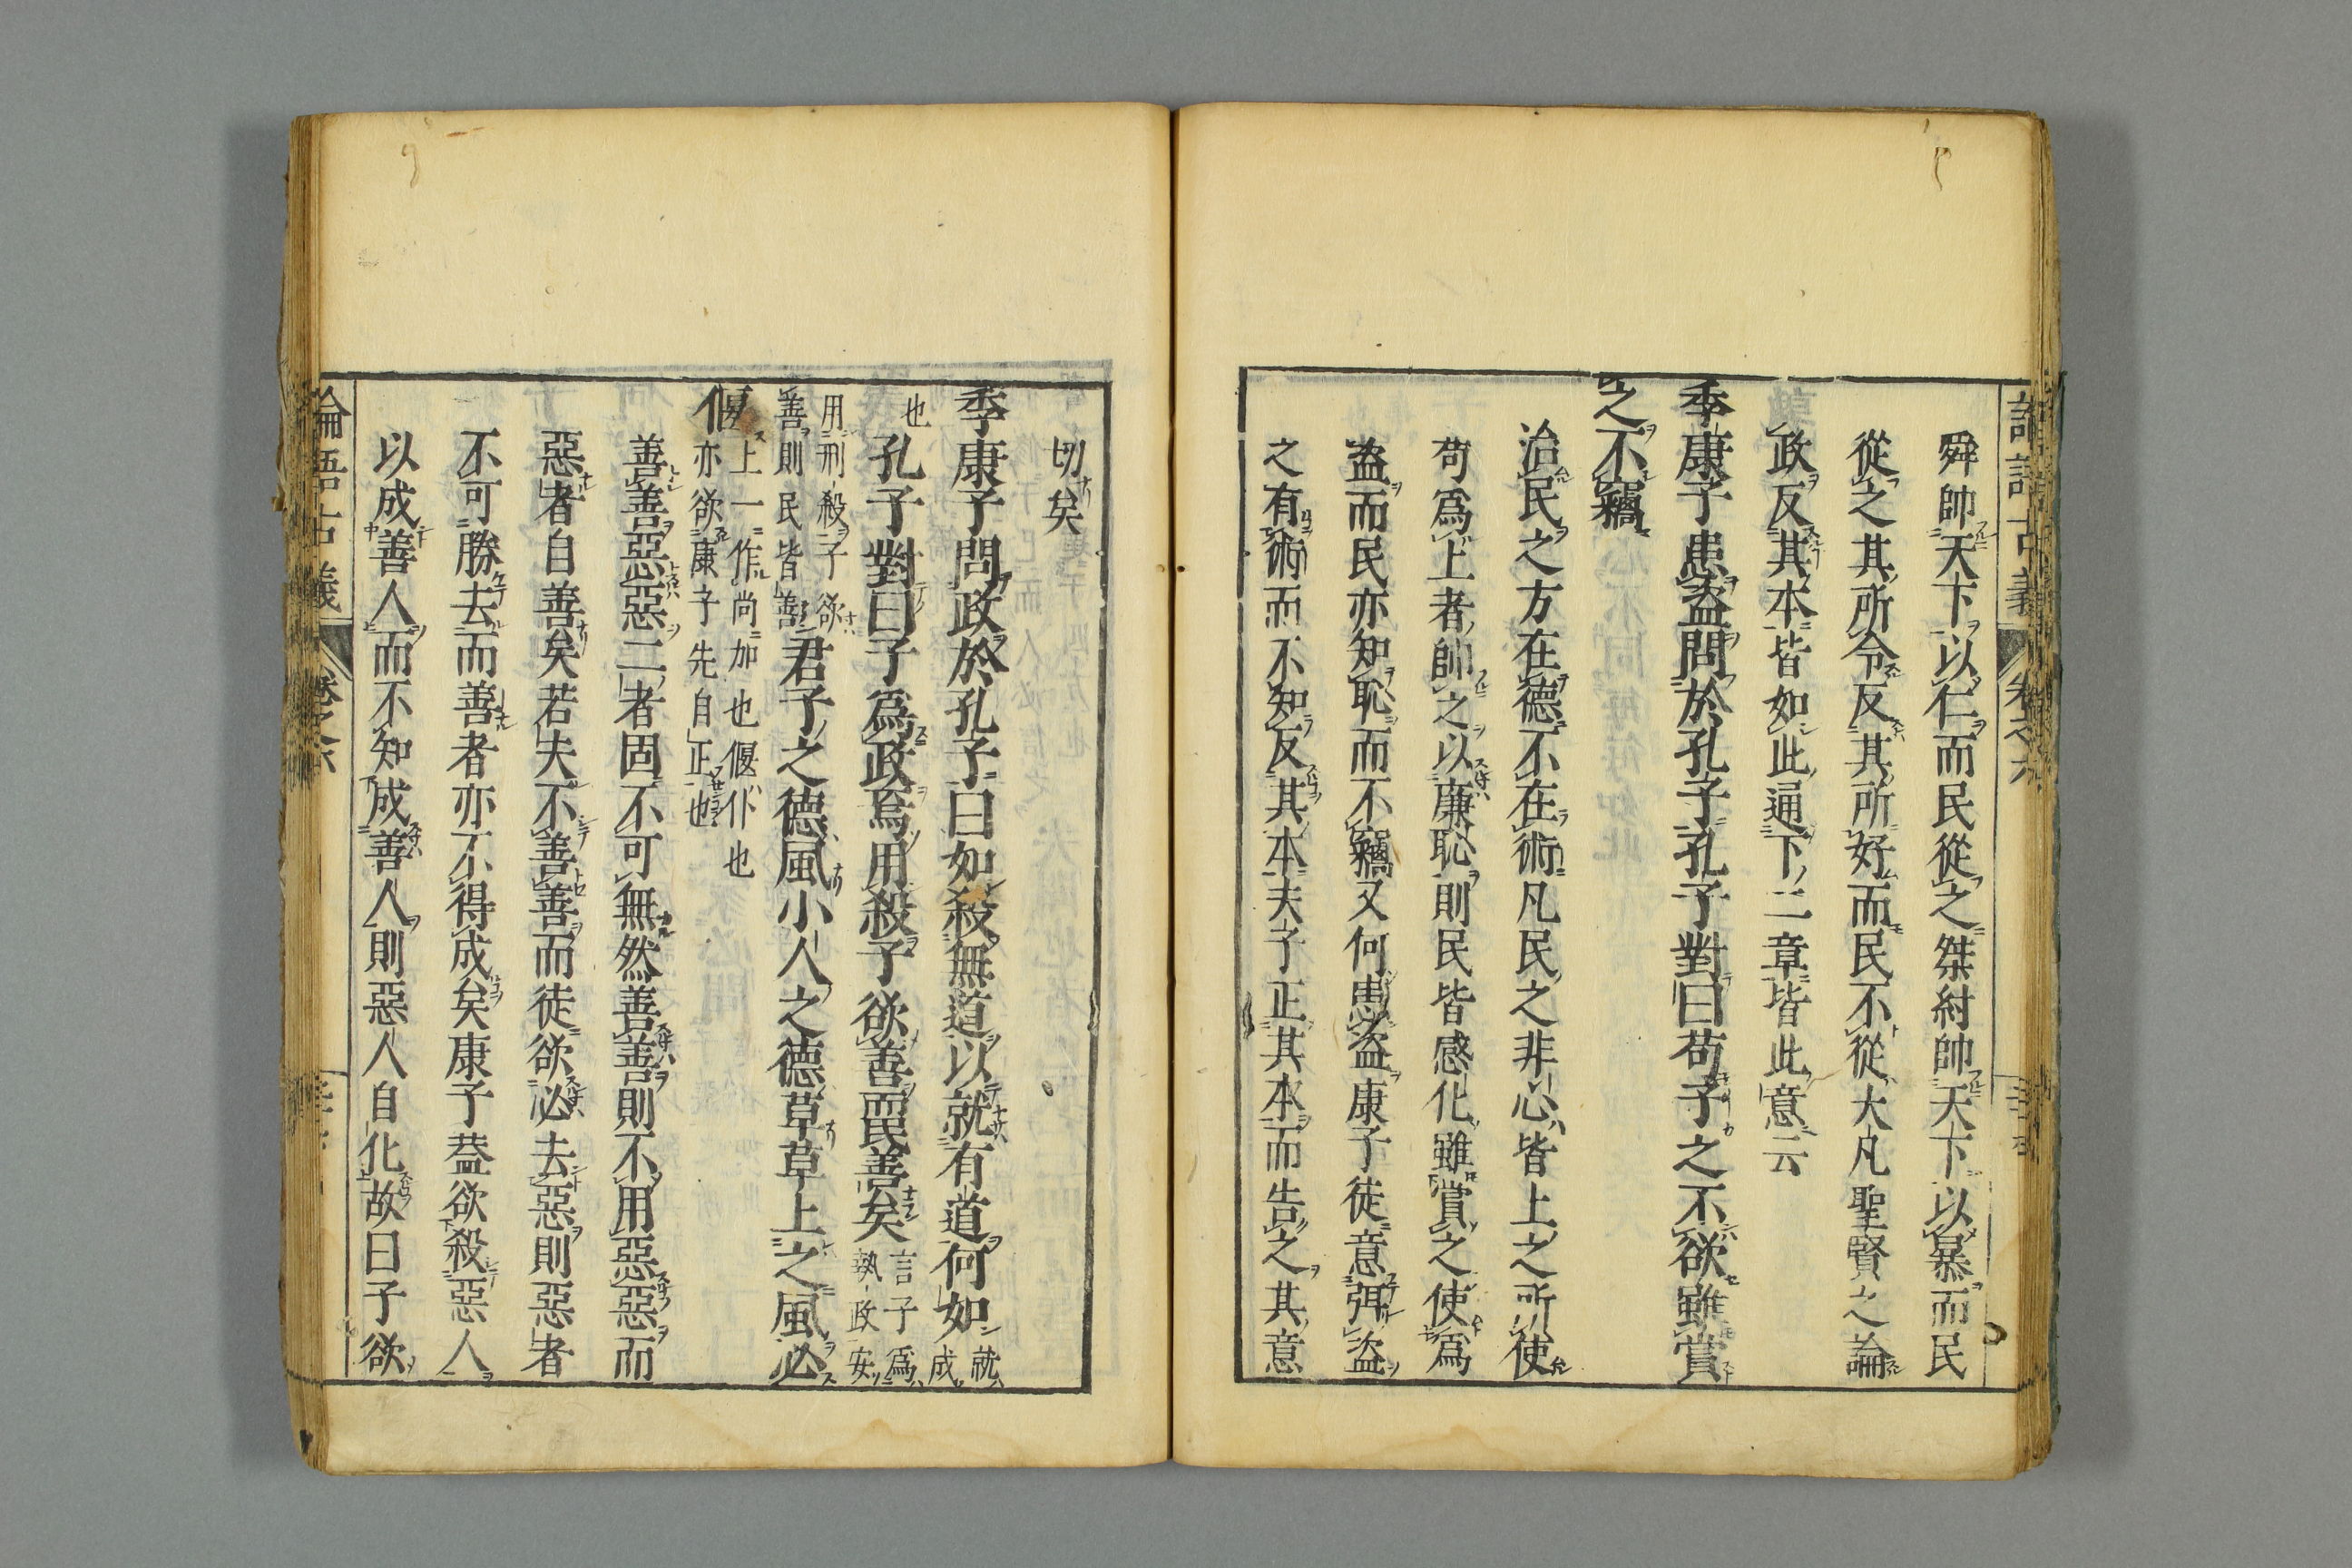 舜帥天下以仁而民從之桀紂帥天下以暴而民
從之其所令反其所好而民不從大凡聖賢之論
政反其本皆如此通下二章皆此意云
季康子患盜問於孔子孔子對曰苟子之不欲雖賞
之不竊
治民之方在德不在術凡民之非心皆上之所使
苟爲上者帥之以廉恥則民皆感化雖賞之使爲
盜而民亦知恥而不竊又何患盜康子徒意弭盜
之有術而不知反其本夫子正其本而告之其意
切矣
季康子問政於孔子曰如殺無道以就有道何如就成
也孔子對曰子爲政焉用殺子欲善而民善矣言子爲執政安
用刑殺子欲善則民皆善君子之德風小人之德草草上之風必
偃上一作尚加也偃仆也亦欲康子先自正也
善善惡惡二者固不可無然善善則不用惡惡而
惡者自善矣若夫不善善而徒欲必去惡則惡者
不可勝去而善者亦不得成矣康子蓋欲殺惡人
以成善人而不知成善人則惡人自化故曰子欲
論語古義 卷之六